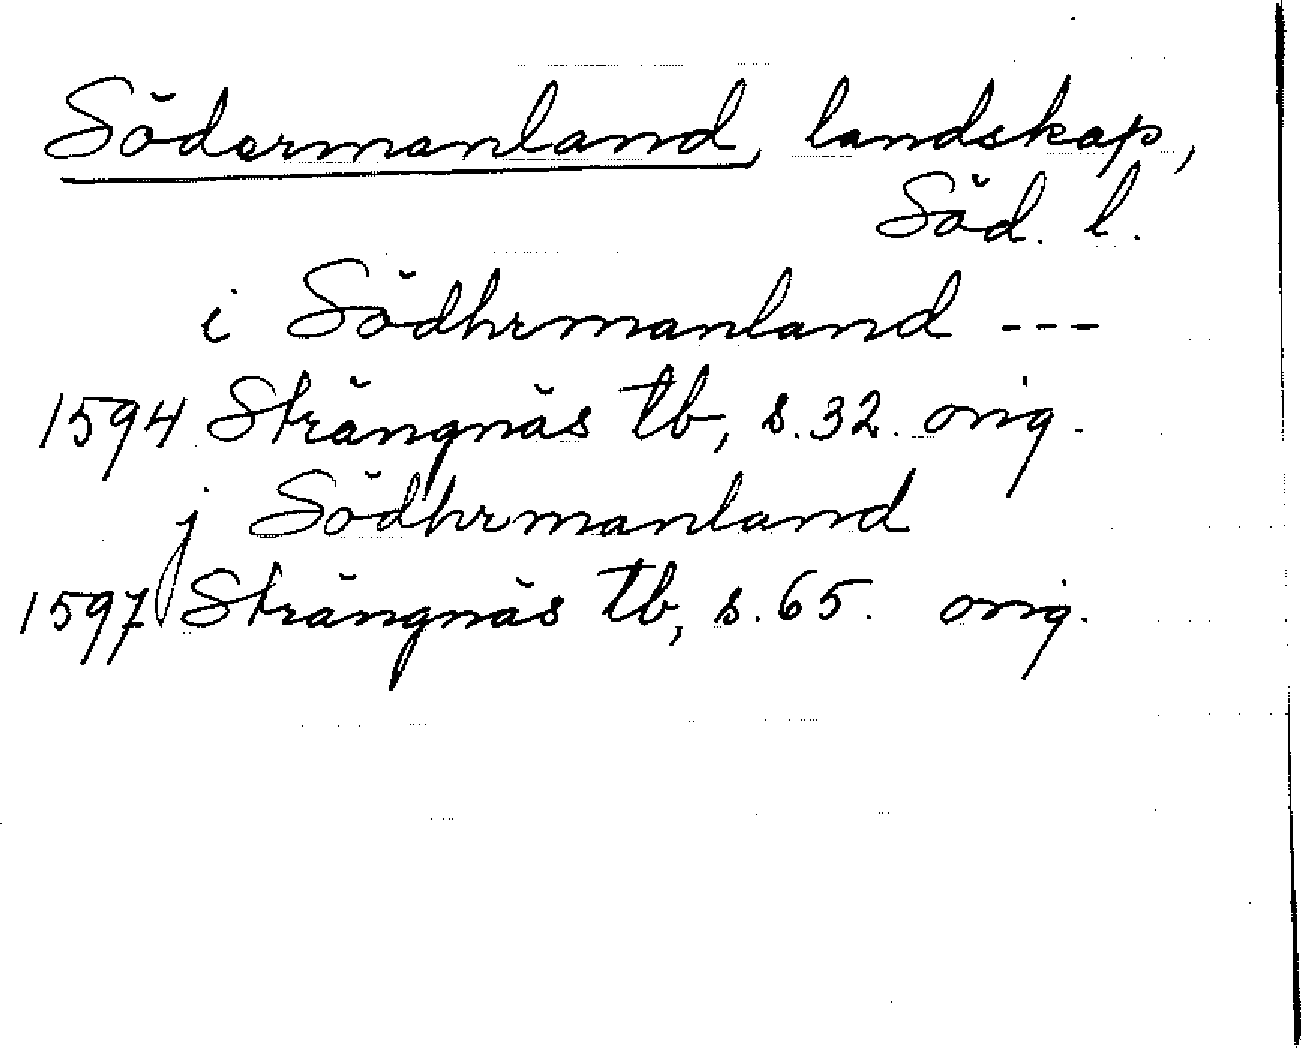 Södermanland, landskap,
Söd. l.
i Södhrmanland ---
1594 Strängnäs tb, s. 32. orig.
j Södhrmanland
1597 Strängnäs tb, s. 65. orig.